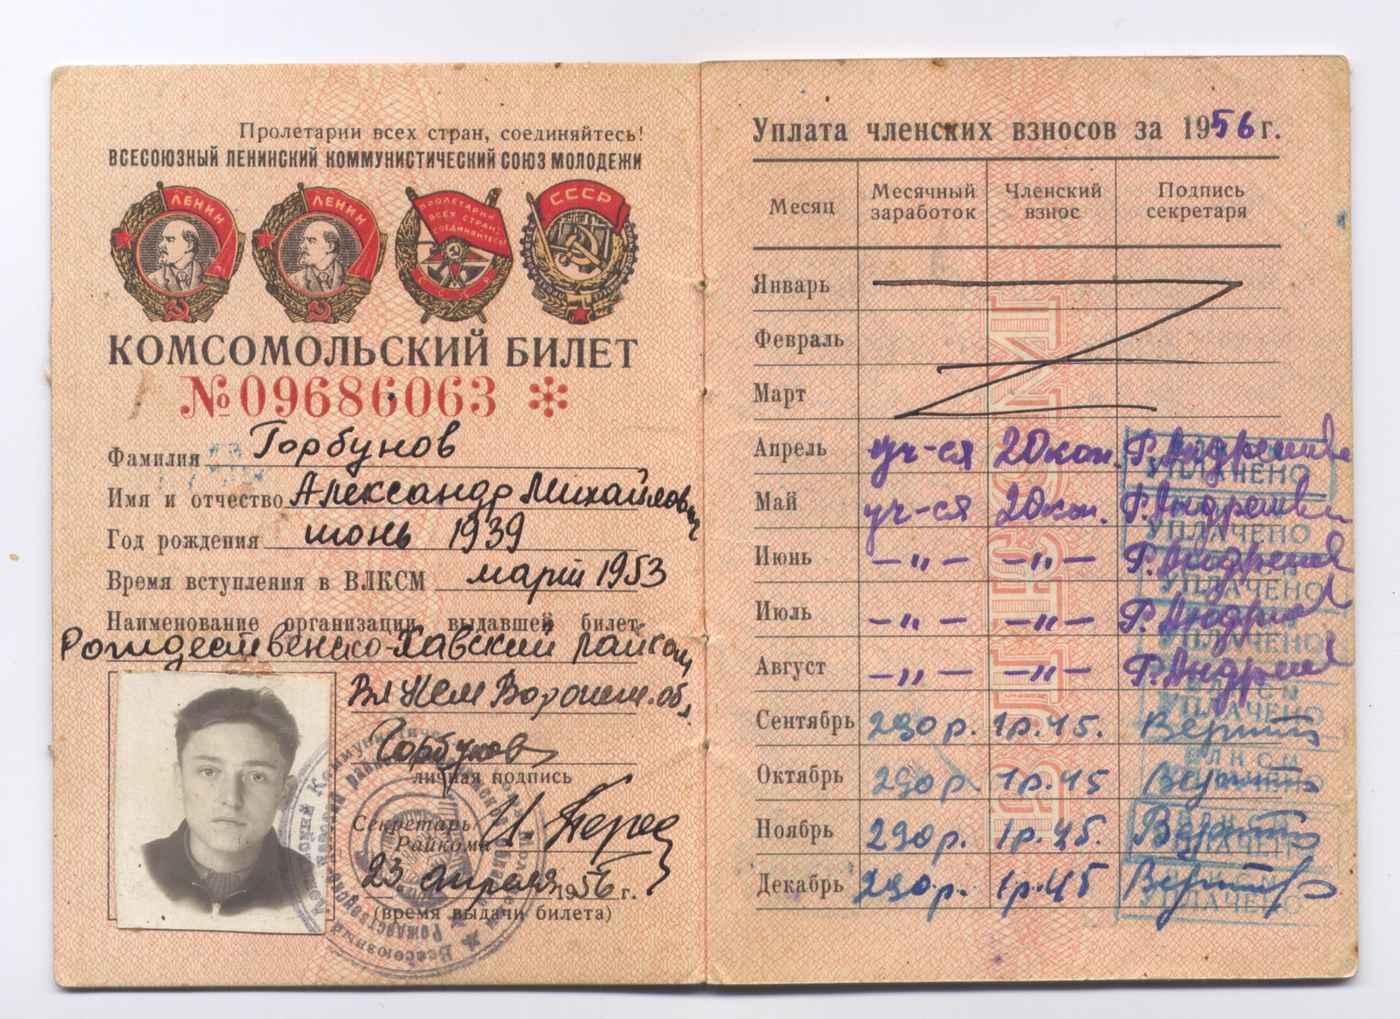 Пролетарии всех стран, соединяйтесь!
ВСЕСОЮЗНЫЙ ЛЕНИНСКИЙ КОММУНИСТИЧЕСКИЙ СОЮЗ МОЛОДЕЖИ
ЛЕНИН
ЛЕНИН
ПРОЛЕТАРИИ ВСЕХ СТРАН, СОЕДИНЯЙТЕСЬ!
СССР
КОМСОМОЛЬСКИЙ БИЛЕТ
№09686063
Фамилия Горбунов
Имя и отчество Александр Михайлович
Год рождения июнь 1939
Время вступления в ВЛКСМ март 1953
Наименование организации, выдавшей билет
Рождественско-Хавский райком
ВЛКСМ Воронеж. об.
Горбунов
личная подпись
Секретарь
Райкома
23 апреля 1956 г.
(время выдачи билета)
Уплата членских взносов за 1956 г.
Месяц Месячный заработок Членский взнос Подпись секретаря
Январь
Февраль
Март
Апрель уч-ся 20 коп. Г. УПЛАЧЕНО
Май уч-ся 20 коп. Г. УПЛАЧЕНО
Июнь -"- -"- Г. УПЛАЧЕНО
Июль -"- -"- Г. УПЛАЧЕНО
Август -"- -"- Г. УПЛАЧЕНО
Сентябрь 290 р. 1 р. 45. ВЛКСМ
Октябрь 290 р. 1 р. 45
Ноябрь 290 р. 1 р. 45. УПЛАЧЕНО
Декабрь 290 р. 1 р. 45 УПЛАЧЕНО